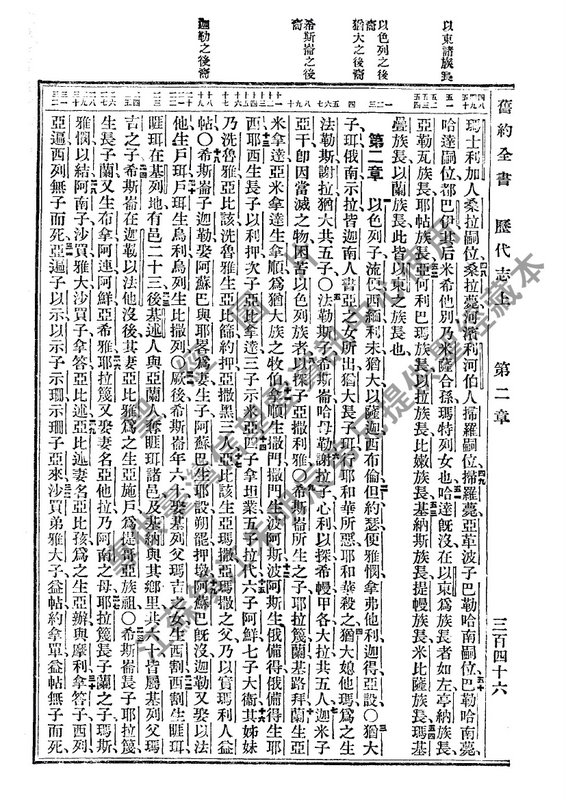 以東諸族長
以色列之後裔
猶大之後裔
希斯崙之後裔
迦勒之後裔
舊約全書 歷代志上 第二章 三百四十六
瑪士利加人桑拉嗣位桑拉薨河濱利河伯人掃羅嗣位掃羅薨亞革波子巴勒哈南嗣位巴勒哈南薨
哈達嗣位都巴伊其后米希他別乃米薩合孫瑪特列女也哈達旣沒在以東爲族長者如左亭納族長
亞勒瓦族長耶帖族長亞何利巴瑪族長以拉族長比嫩族長基納斯族長提幔族長米比薩族長瑪基
疊族長以蘭族長此皆以東之族長也
第二章 以色列子流便西緬利未猶大以薩迦西布倫但約瑟便雅憫拿弗他利迦得亞設〇猶大
子珥俄南示拉皆迦南人書亞之女所出猶大長子珥耶和華所惡耶和華殺之猶大媳他瑪爲之生
法勒斯謝拉猶大共五子〇法勒斯子希斯崙哈母勒謝拉子心利以探希幔甲各大拉共五人迦米子
亞干卽因當滅之物因害以色列族者以探子亞撒利雅〇希斯崙所生之子耶拉篾蘭基路拜蘭生亞
米拿達亞米拿達生拿順爲猶大族之牧伯拿順生撒門撒門生波阿斯波阿斯生俄備得俄備得生耶
西耶西生長子以利押次子亞比拿達三子示米亞四子拿坦業五子拉代六子阿鮮七子大衛其姊妹
乃洗魯雅亞比該洗魯雅生亞比篩約押亞撒黑三人亞比該生亞瑪撒亞瑪撒之父乃以實瑪利人益
帖〇希斯崙子迦勒娶阿蘇巴與耶畧爲妻生子阿蘇巴生耶設朔罷押墩阿蘇巴旣沒迦勒又娶以法
他生戶珥戶珥生烏利烏利生比撒列〇厥後希斯崙年六十娶基列父瑪吉之女生西割西割生睚珥
睚珥在基列地有邑二十三後基述人與亞蘭人奪睚珥諸邑及基納與其鄉里共六十皆屬基列父瑪
吉之子希斯崙在迦勒以法他沒後其妻亞比雅爲之生亞施戶爲提哥亞族祖〇希斯崙長子耶拉篾
生長子蘭又生布拿阿連阿鮮亞希雅耶拉篾又娶妻名亞他拉乃阿南之母耶拉篾長子蘭之子瑪斯
雅憫以結阿南子沙買雅大沙買子拿答亞比述亞比述妻名亞比孩爲之生亞辦與摩利拿答子西列
亞遍西列無子而死亞遍子以示以示子示珊示珊子亞來沙買弟雅大子益帖約拿單益帖無子而死